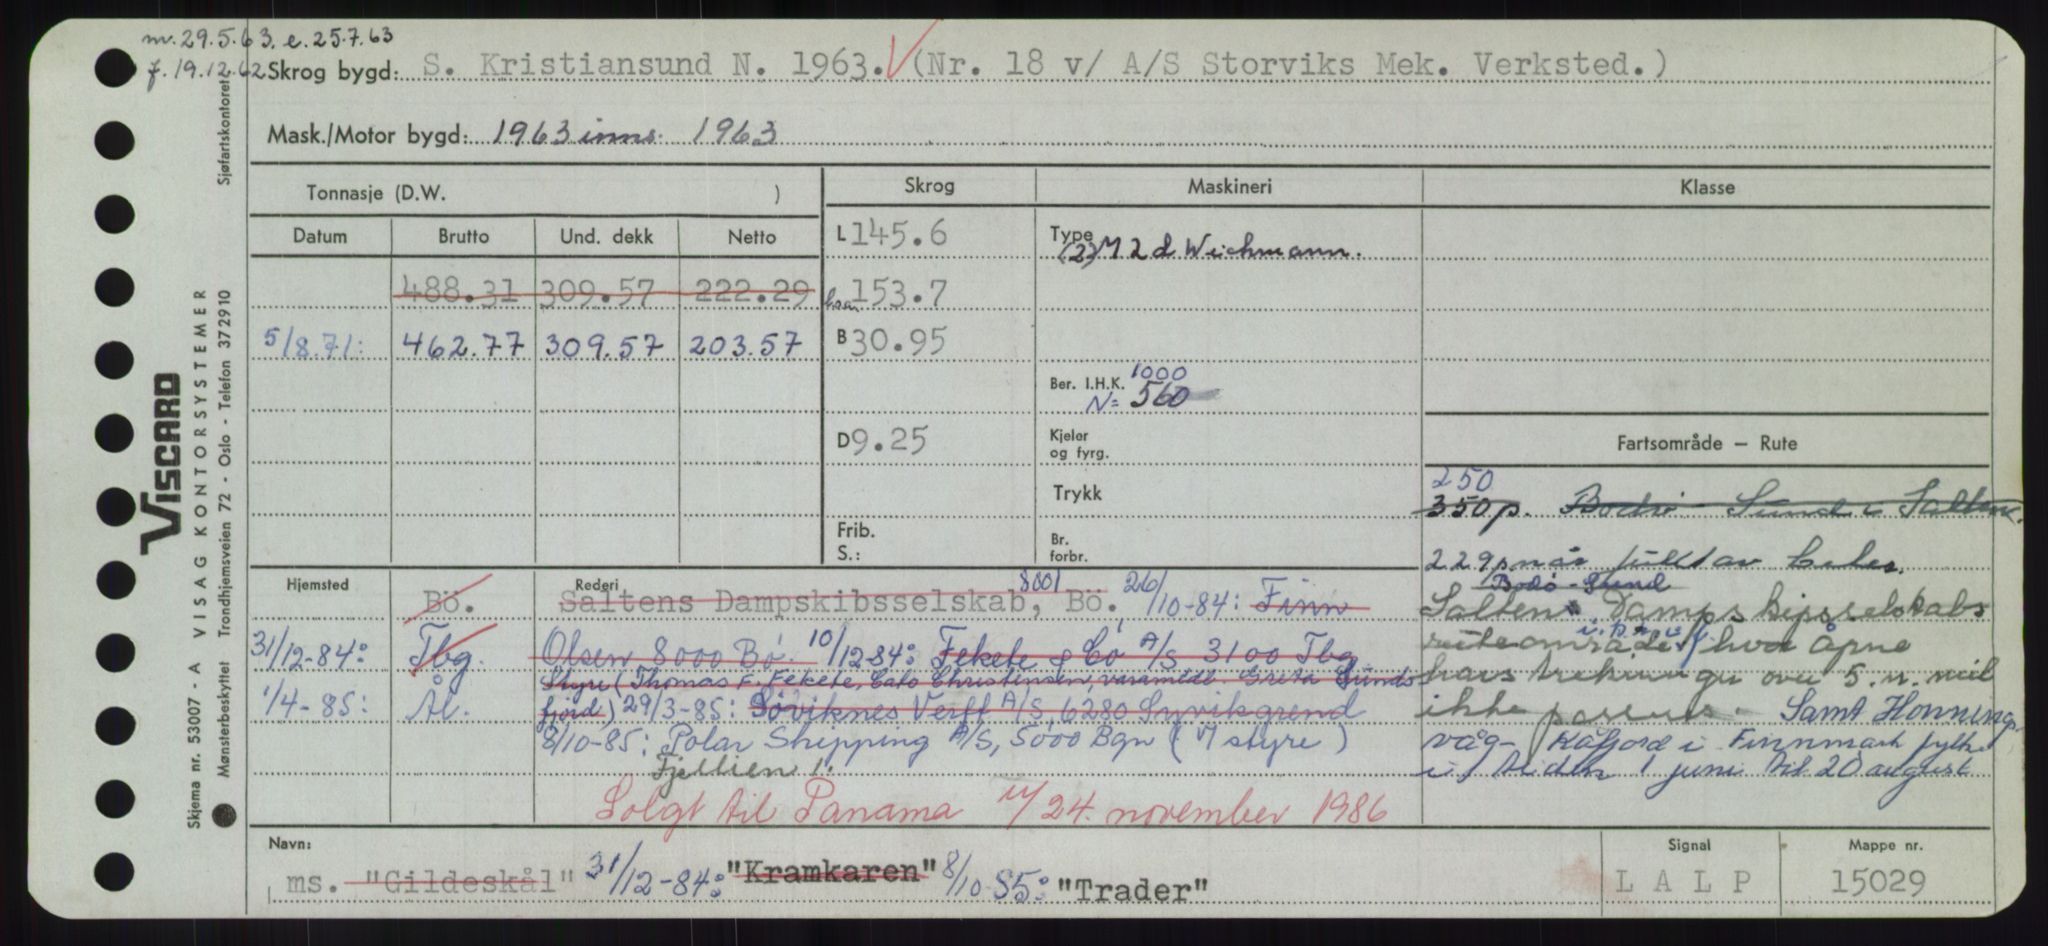 m. 29.5.63. e. 25.7.63
f. 19.12.62
Skrog bygd: S. Kristiansund N. 1963. (Nr. 18 v/ A/S Storviks Mek. Verksted.)
Mask./Motor bygd: 1963 inns. 1963
Tonnasje (D.W. )
Skrog
Maskineri
Klasse
Datum Brutto Und. dekk Netto
L 145.6
Type (2) M 2 d Wichmann.
488.31 309.57 222.29
153.7
5/8.71: 462.77 309.57 203.57
B 30.95
Ber. I.H.K. 1000
N= 560
D 9.25
Kjeler
og fyrg.
Trykk
Frib.
S.:
Br.
forbr.
Fartsområde – Rute
250
350 p. Bodø - Sund i Salten.
229 p når fullt av
Bodø - Sund
Saltens Dampskipsselskabs
ruteområde hvor åpne
havstrekninger over 5. n. mil
ikke passeres. Samt Honnings-
våg - Kåfjord i Finnmark fylke
i tiden 1 juni til 20 august
Hjemsted
Bö.
31/12-84: Tbg.
1/4-85: Ål.
Rederi
8001
Saltens Dampskibsselskab, Bö. 26/10-84: Finn
Olsen 8000 Bö. 10/12-84: Fekete & Co A/S 3100 Tbg
Styre (Thomas F. Fekete, Cato Christensen, varamedl. Greta Sunds
fjord) 29/3-85: Søviknes Verft A/S, 6280 Syvikgrend
8/10-85: Polar Shipping A/S, 5000 Bgn ( M styre )
Fjellien 1.
Solgt til Panama 24. november 1986
Navn:
ms. "Gildeskål" 31/12-84: "Kramkaren" 8/10-85: "Trader"
Signal
L A L P
Mappe nr.
15029
VISCARD
Skjema nr. 53007 - A VISAG KONTORSYSTEMER
Mønsterbeskyttet Trondhjemsveien 72 - Oslo - Telefon 372910
Sjøfartskontoret